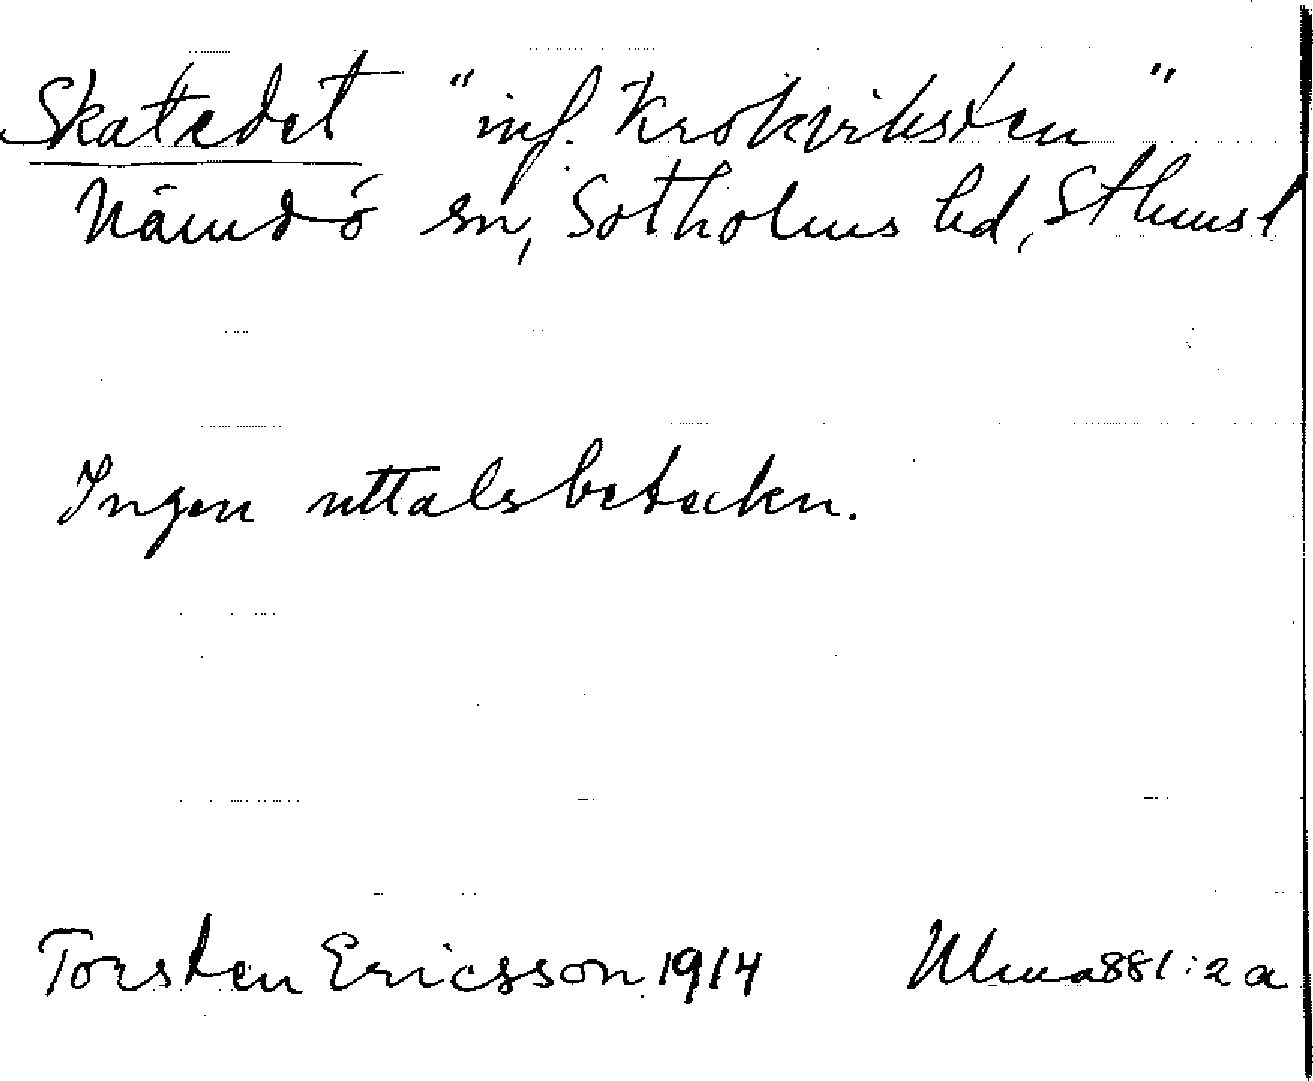 Skatedet "inf. Krokviksten"
Nämdö sn, Sotholms hd, Sthms l
Ingen uttalsbeteckn.
Torsten Ericsson 1914 Ulma 881:2 a